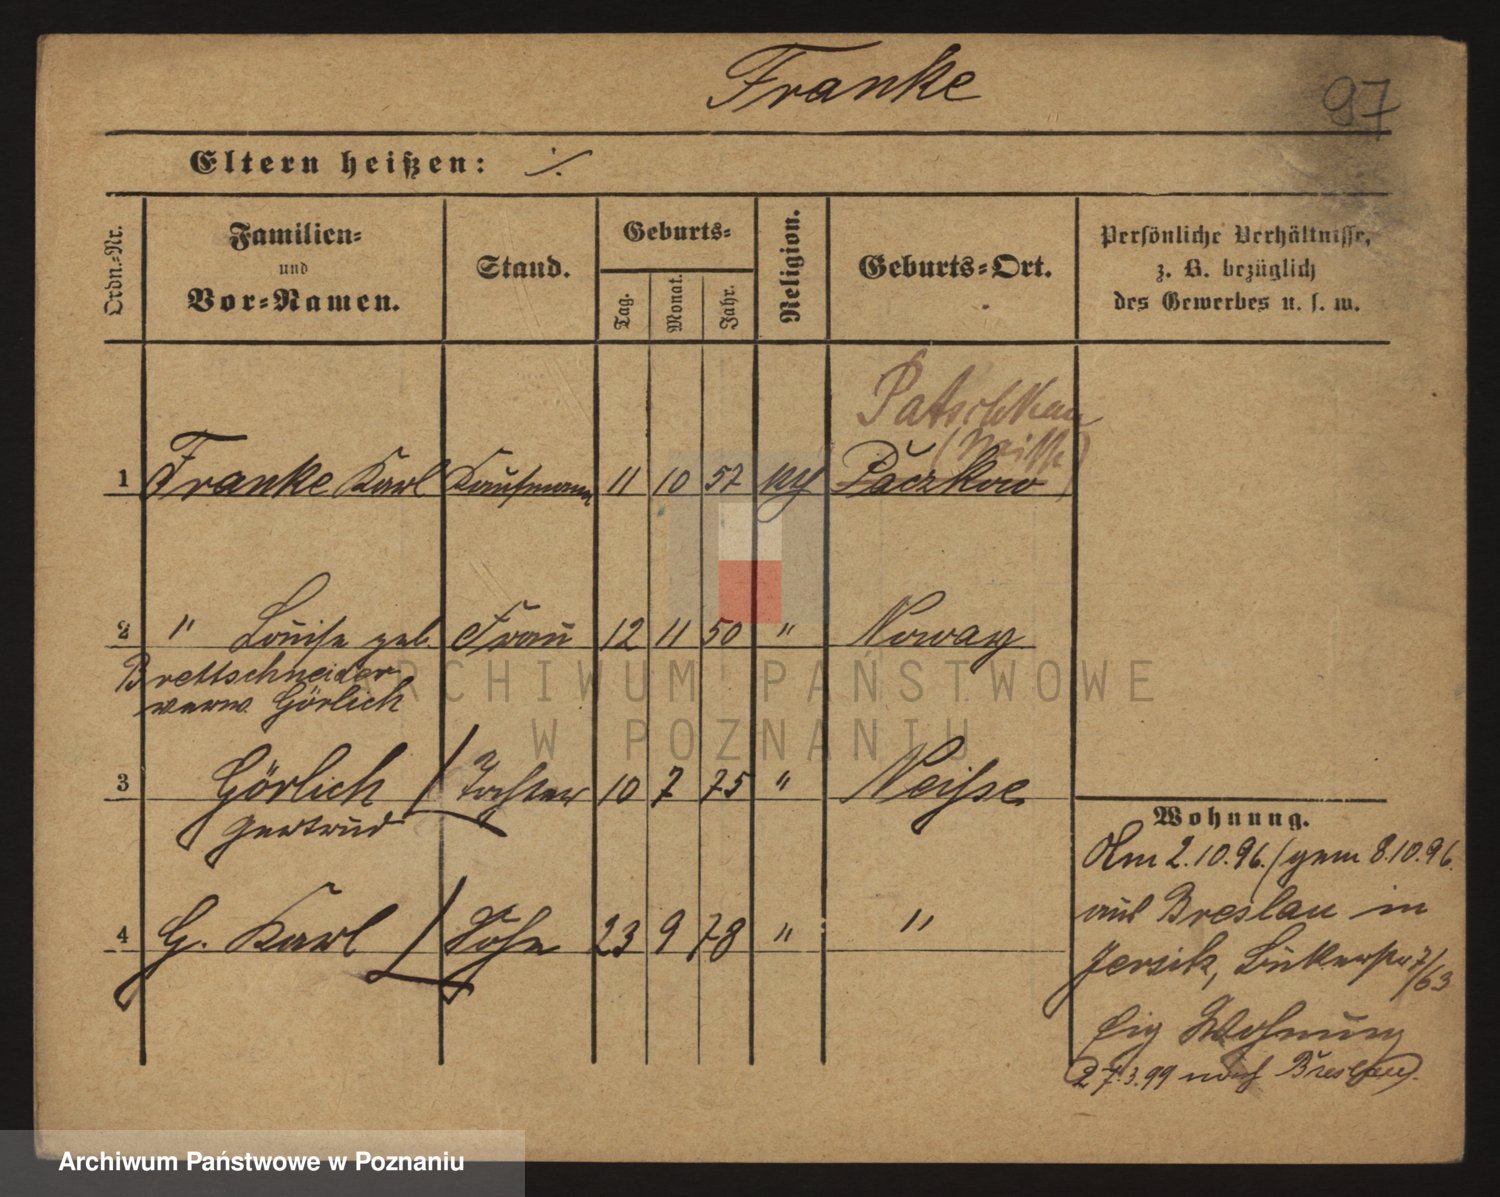 Franke
97
Eltern heißen: ·/.
Ordn.-Nr.
Familien-
und
Vor-Namen.
Stand.
Geburts-
Tag.
Monat.
Jahr.
Religion.
Geburts-Ort.
Persönliche Verhältnisse,
z. B. bezüglich
des Gewerbes u. s. w.
Patschkau
1 Franke Karl Kaufmann 11 10 57 Paczkow
2 " Louise geb. Frau 12 11 50 " Noway
Brettschneider
verw. Görlich
3 Görlich / Tochter 10 7 75 " Neisse
Gertrud
4 G. Karl / Sohn 23 9 78 " "
Wohnung.
Am 2.10.96. / gem 8.10.96.
aus Breslau in
Jersik, 7/63
Eig Wohnung
27.3.99 nach Breslau.
ARCHIWUM PAŃSTWOWE
W POZNANIU
Archiwum Państwowe w Poznaniu